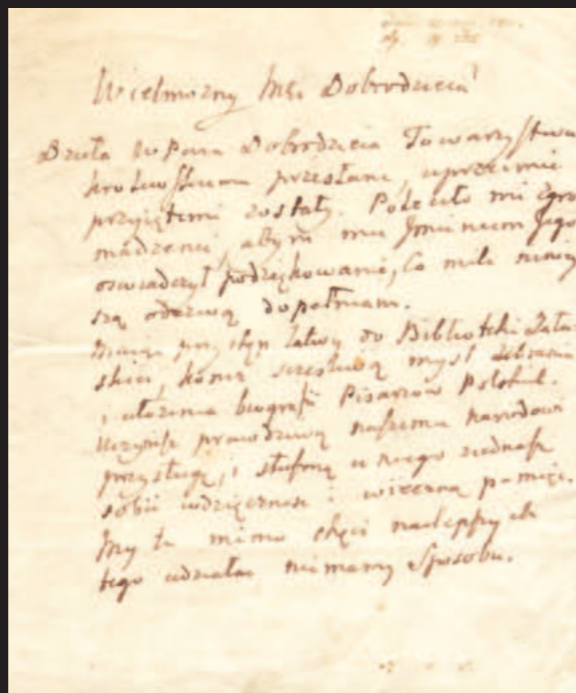 Wielmożny Mci Dobrodzieiu!
Dzieła WPana Dobrodzieia Towarzystwu
przesłane, uprzeimie
przyiętemi zostały. Poleciło mi zgro
madzenie, abym mu Imieniem Jego
oświadczył podziękowanie, Co miło niniey
szą odezwą dopełniam.
Maiąc przystęp łatwy do Biblioteki Zału
skich, szczęśliwą myśl zebrania
i ułożenia biografii Pisarzow Polskich.
prawdziwą naszemu Narodowi
przysługę, i u niego ziednasz
sobie wdzięczność i wieczną pamięć.
My tu mimo chęci naylepszych
tego udziałać niemamy Sposobu.